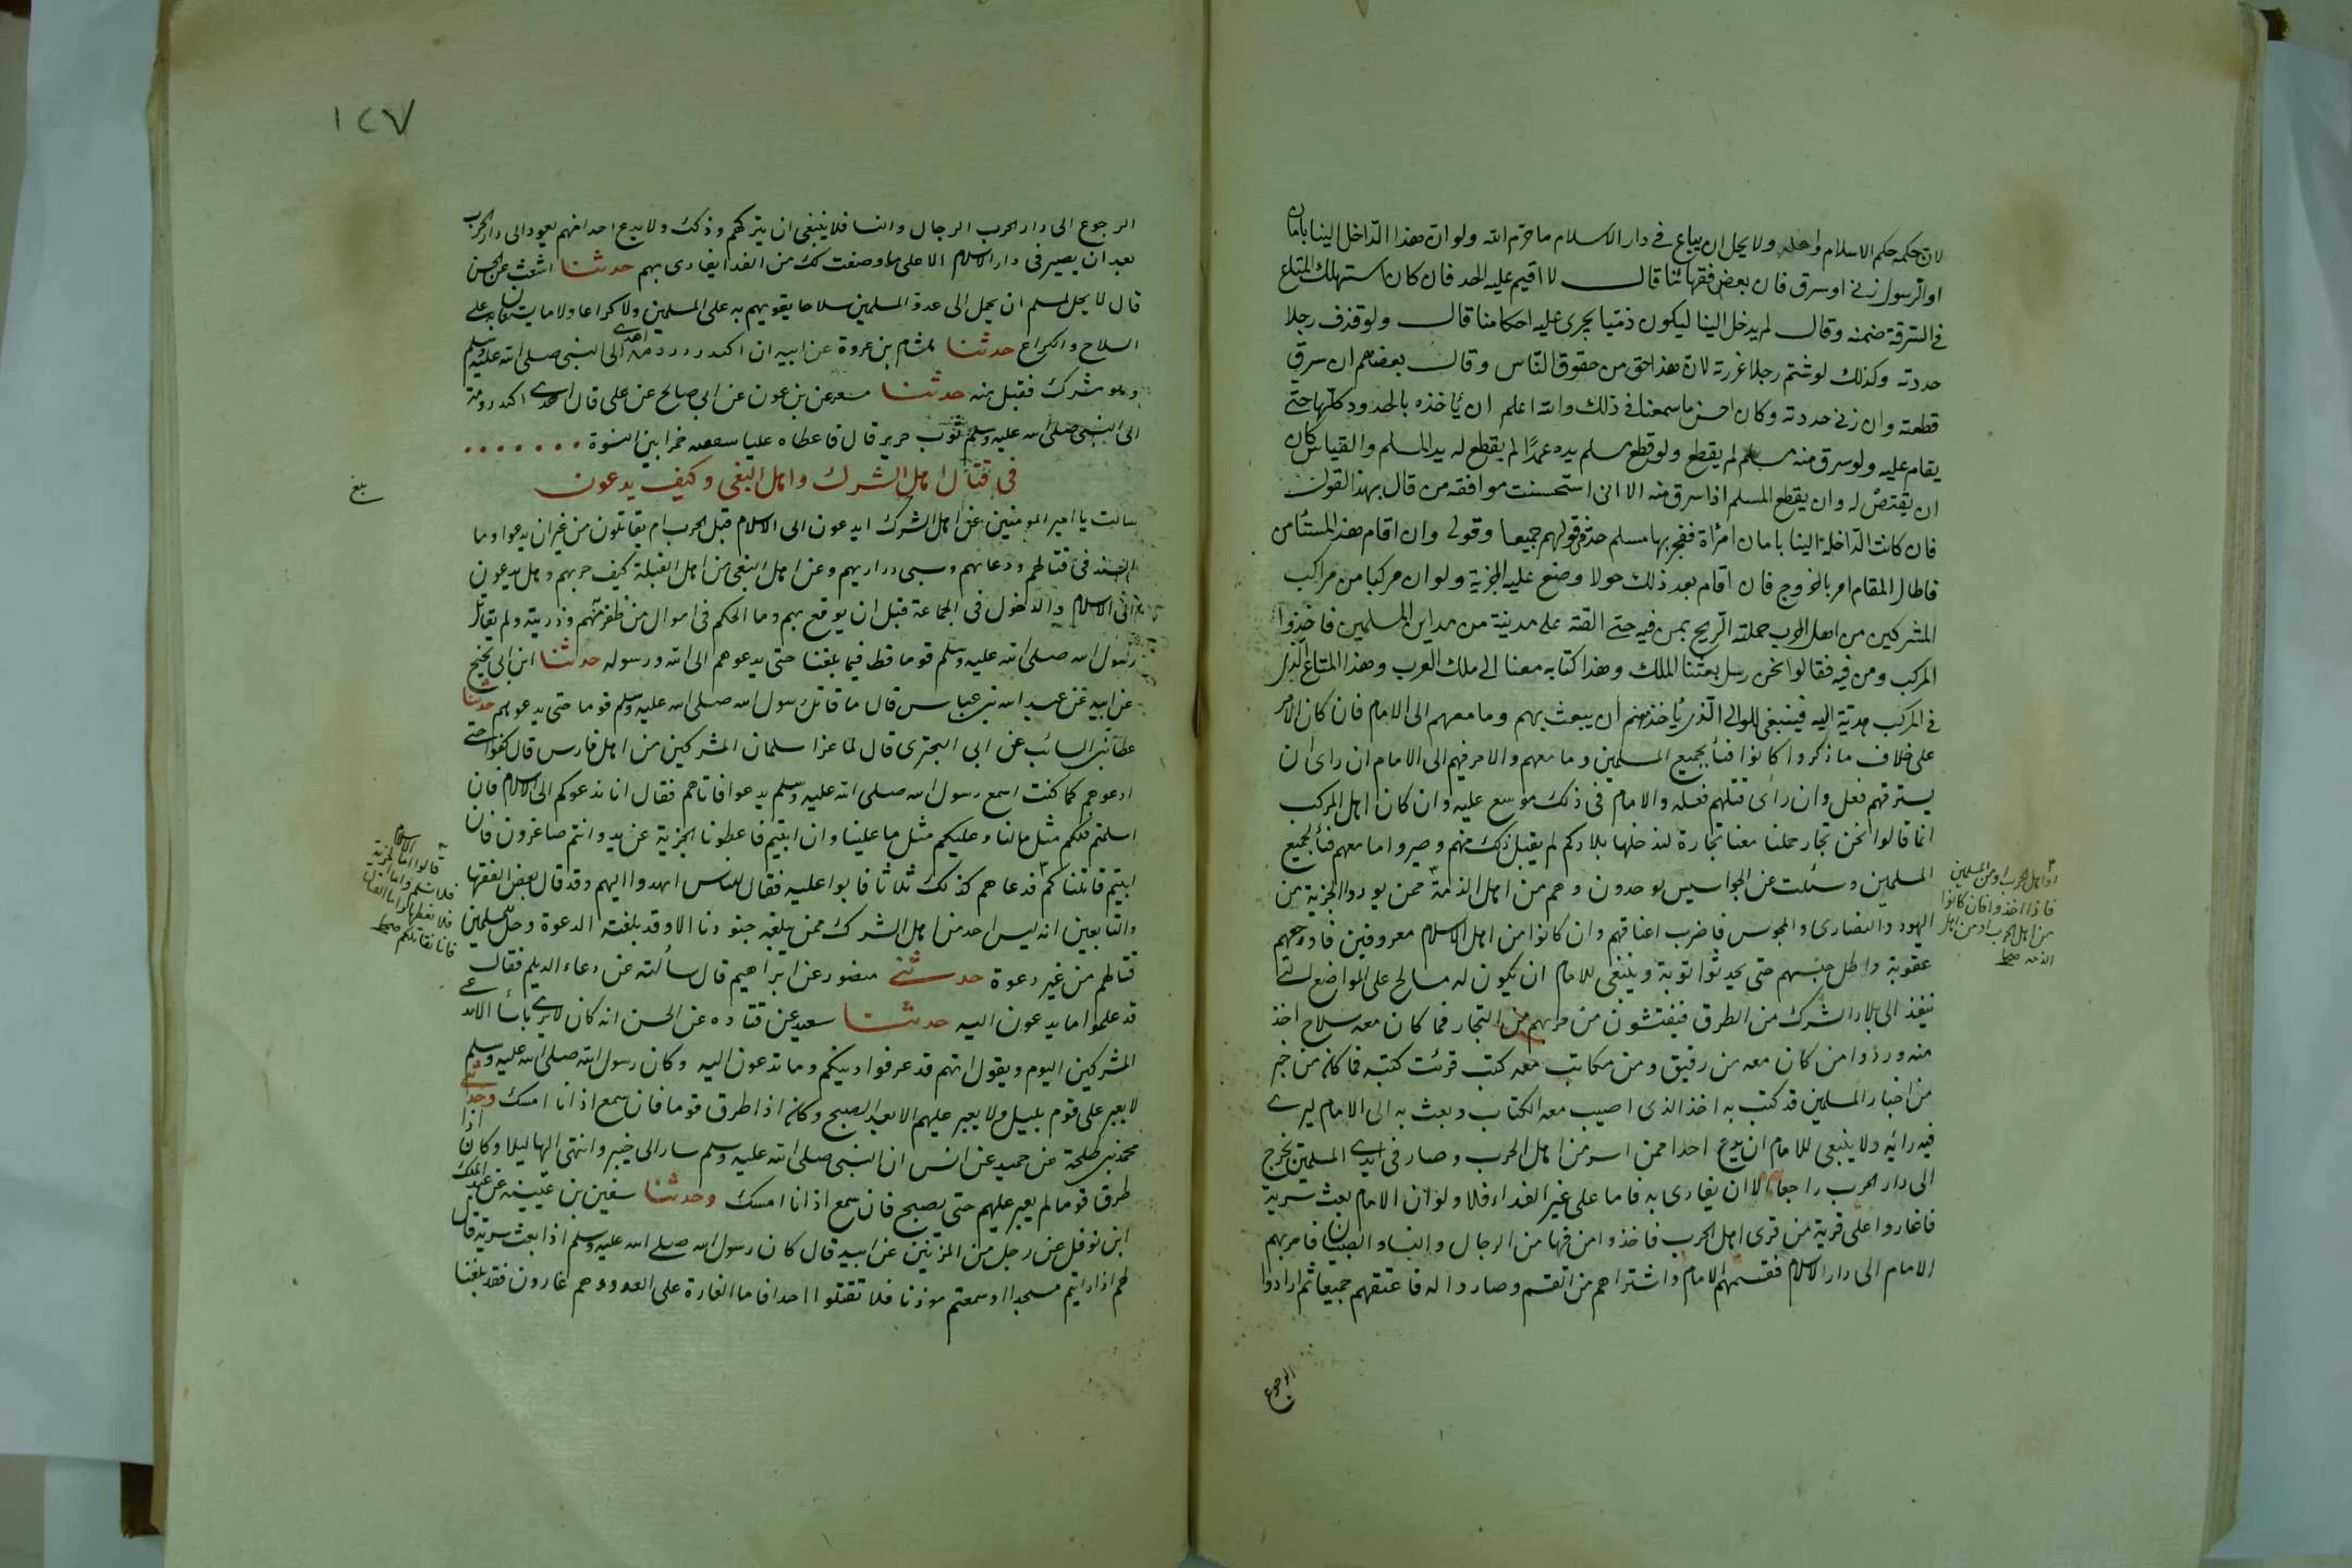 لان حكمه حكم الاسلام واهله ولا يحل ان يباع فى دار الاسلام ما حرّم الله ولو ان هذا الدّاخل الينا بامان
او الرسول زنى او سرق فان بعض فقهائنا قال لا اقيم عليه الحد فان كان استهلك المتاع
فى السّرقة ضمنه وقال لم يدخل الينا ليكون ذمّيا يجرى عليه احكامنا قال ولو قذف رجلا
حددته وكذلك لو شتم رجلا عزرته لان هذا حق من حقوق النّاس وقال بعضهم ان سرق
قطعته وان زنى حددته وكان احسن ما سمعنا فى ذلك والله اعلم ان يأخذه بالحدود كلّها حتى
يقام عليه ولو سرق منه مسلم لم يقطع ولو قطع مسلم يده عمدًا لم يقطع له يد المسلم والقياس كان
ان يقتصّ له وان يقطع المسلم اذا سرق منه الا انى استحسنت موافقه من قال بهذا القول
فان كانت الدّاخلة الينا بامان امرأة ففجر بها مسلم حدّ فى قولهم جميعا وقولى وان اقام هذا المستأمن
فاطال المقام امر بالخروج فان اقام بعد ذلك حولا وضع عليه الجزية ولو ان مركبا من مراكب
المشركين من اهل الحرب حملته الرّيح بمن فيه حتى القته على مدينة من مداين المسلمين فاخذوا
المركب ومن فيه فقالوا نحن رسل بعثنا الملك وهذا كتابه معنا الى ملك العرب وهذا المتاع الذى
فى المركب هدية اليه فينبغى للوالى الّذى يأخذهم ان يبعث بهم وما معهم الى الامام فان كان الامر
على خلاف ما ذكروا كانوا فيأ لجميع المسلمين وما معهم والامر فيهم الى الامام ان راى ان
يسترقهم فعل وان رأى قتلهم فعله والامام فى ذلك موسع عليه وان كان اهل المركب
انما قالوا نحن تجار حملنا معنا تجارة لندخلها بلادكم لم يقبل ذلك منهم وصيروا ما معهم فيأ لجميع
المسلمين وسئلت عن الجواسيس يوجدون وهم من اهل الذمة ممن يوردوا الجزية من
اليهود والنصارى والمجوس فاضرب اعناقهم وان كانوا من اهل الاسلام معروفين فاوجعهم
عقوبة واطل حبسهم حتى يحدثوا توبة وينبغى للامام ان يكون له مسالح على المواضع التى
تنفذ الى بلاد الشرك من الطرق فيفتشون من مر بهم من التجار فما كان معه سلاح اخذ
منه ورد وا من كان معه من رقيق ومن مكاتب معه كتب قرئت كتبه فما كان من خبر
من اخبار المسلمين قد كتب به اخذ الذى اصيب معه الكتاب وبعث به الى الامام ليرى
فيه رائيه ولا ينبغى للامام ان يدع احدا ممن اسر من اهل الحرب وصار فى ايدى المسلمين يخرج
الى دار الحرب راجعا الا ان يفادى به فاما على غير الفداء فلا ولو ان الامام بعث سرية
فاغاروا على قرية من قرى اهل الحرب فاخذوا من فيها من الرجال والنساء والصبيان فامر بهم
الامام الى دار الاسلام فقسمهم الامام واشتراهم من القسم وصاروا له فاعتقهم جميعا ثم ارادوا
او اهل الحرب او من المسلمين
فاذا اخذوا فان كانوا
من اهل الحرب او من اهل
الذمه صح
الرجوع
١٢٧
الرجوع الى دار الحرب الرجال والنسا فلا ينبغى ان يتركهم وذلك ولا يدع احدا منهم يعود الى دار الحرب
بعد ان يصير فى دار الاسلام الا على ما وصفت لك من الفدا يفادى بهم حدثنا اشعث عن الحسن
قال لا يحل لمسلم ان يحمل الى عدوّ المسلمين سلاحا يقويهم به على المسلمين ولا كراعا ولا ما يستعان به على
السلاح والكراع حدثنا هشام بن عروة عن ابيه ان اكيدر دومة اهدى الى النبى صلى الله عليه وسلم
وهو مشرك فقبل منه حدثنا مسعر عن بن عون عن ابى صالح عن على قال اهدى اكيدر دومة
الى النبى صلى الله عليه وسلم ثوب حرير قال فاعطاه عليا فقال خمرا بين النسوة
فى قتال اهل الشرك واهل البغى وكيف يدعون
بلغ
سالت يا امير المومنين عن اهل الشرك ايدعون الى الاسلام قبل الحرب ام يقاتلون من غير ان يدعوا وما
السنة فى قتالهم ودعائهم وسبى دراريهم وعن اهل البغى من اهل القبلة كيف حربهم وهل يدعون
الى الاسلام والدخول فى الجماعة قبل ان يوقع بهم وما الحكم فى اموال من ظفر منهم وذريته ولم يقاتل
رسول الله صلى الله عليه وسلم قوما قط فيما بلغنا حتى يدعوهم الى الله ورسوله حدثنا ابن ابى نجيح
عن ابيه عن عبد الله بن عباس قال ما قاتل رسول الله صلى الله عليه وسلم قوما حتى يدعوهم حدثنا
عطا بن السائب عن ابى البخترى قال لما غزا سلمان المشركين من اهل فارس قال كفوا حتى
ادعوهم كما كنت اسمع رسول الله صلى الله عليه وسلم يدعوا فاتاهم فقال انا ندعوكم الى الاسلام فان
اسلمتم فلكم مثل ما لنا وعليكم مثل ما علينا وان ابيتم فاعطونا الجزية عن يد وانتم صاغرون فان
ابيتم قاتلناكم فدعاهم كذلك ثلاثا فابوا عليه فقال للناس انهدوا اليهم وقد قال بعض الفقها
والتابعين انه ليس احد من اهل الشرك ممن يبلغه جنودنا الا وقد بلغته الدعوة وحل للمسلمين
قتالهم من غير دعوة حدثنى منصور عن ابراهيم قال سألته عن دعاء الديلم فقال
قد علموا ما يدعون اليه حدثنا سعيد عن قتاده عن الحسن انه كان لا يرى بأسا الا يدعى
المشركين اليوم ويقول انهم قد عرفوا دينكم وما تدعون اليه وكان رسول الله صلى الله عليه وسلم
لا يغير على قوم بليل ولا يغير عليهم الا بعد الصبح وكان اذا طرق قوما فان سمع اذانا امسك وحدثنى
محمد بن طلحة عن حميد عن انس ان النبى صلى الله عليه وسلم سار الى خيبر وانتهى اليها ليلا وكان اذا
طرق قوما لم يغير عليهم حتى يصبح فان سمع اذانا امسك وحدثنا سفين بن عيينه عن عبد الملك
ابن نوفل عن رجل من المزينين عن ابيه قال كان رسول الله صلى الله عليه وسلم اذا بعث سرية قال
لهم اذا رايتم مسجدا او سمعتم موذنا فلا تقتلوا احدا فاما الغارة على العدو وهم غارون فقد بلغنا
قالوا اما الاسلام
فلا نسلم واما الجزية
فلا نعطيها واما القتال
فانا نقاتلكم صح